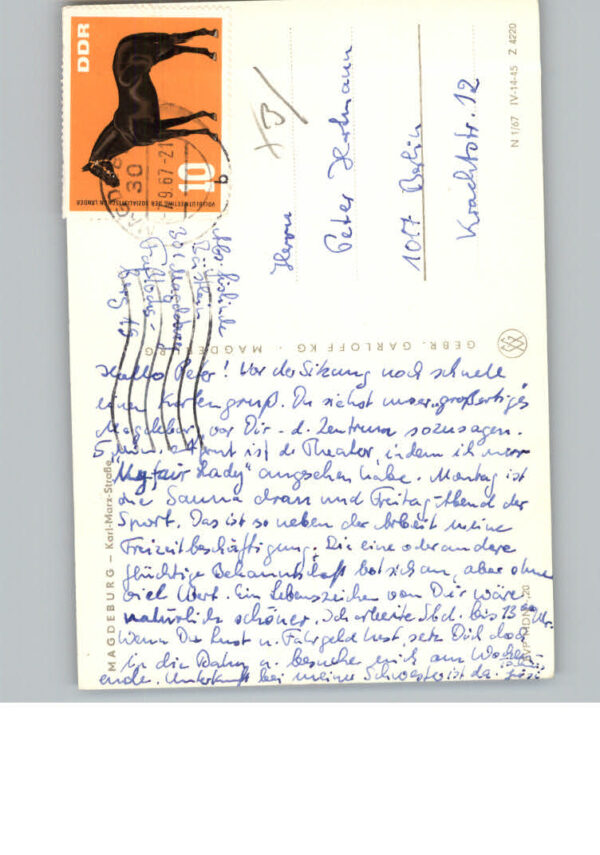 DDR
10
VOLLBLUTMEETING DER SOZIALISTISCHEN LÄNDER
30
-7.9.67-21
b
N 1/67 IV-14-45 Z 4220
Herrn
Peter
1017 Berlin
Krachtstr. 12
GEBR. GARLOFF KG · MAGDEBURG
MAGDEBURG – Karl-Marx-Straße
EVP MDN -,20
301 Magdeburg
Hallo Peter! Vor der Sitzung noch schnell
einen Kartengruß. Du siehst unser „großartiges
Magdeburg" vor Dir - d. Zentrum sozusagen.
5 Min. entfernt ist d. Theater, indem ich neu
„My fair Lady" angesehen habe. Montag ist
die Sauna dran und Freitag-Abend der
Sport. Das ist so neben der Arbeit meine
Freizeitbeschäftigung. Die eine oder andere
flüchtige Bekanntschaft bot sich an, aber ohne
viel Wert. Ein Lebenszeichen von Dir wäre
natürlich schöner. Ich arbeite Sbd. bis 13 Uhr.
Wenn Du Lust u. Fahrgeld hast, setz Dich doch
in die Bahn u. besuche mich am Wochen-
ende. Unterkunft bei meiner Schwester ist da.